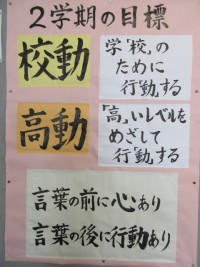 2学期の目標
校動
学「校」の
ために
行「動」する
高動
「高」いレベルを
めざして
行「動」する
言葉の前に心あり
言葉の後に行動あり